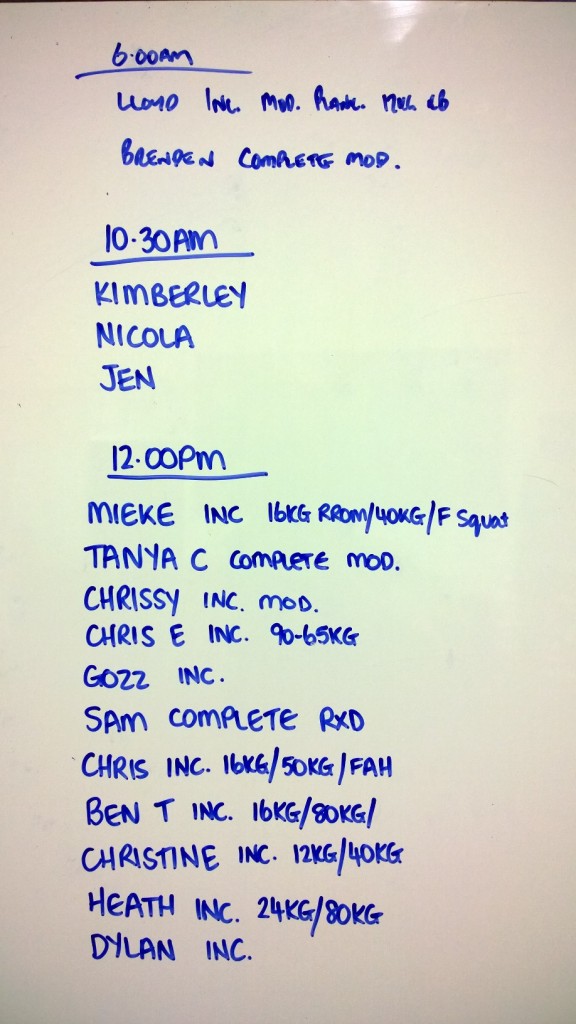 6.00AM
LLOYD INC. MOD. PLANK.
BRENDEN COMPLETE MOD.
10.30AM
KIMBERLEY
NICOLA
JEN
12.00PM
MIEKE INC 16KG RROM/40KG/F Squat
TANYA C COMPLETE MOD.
CHRISSY INC. MOD.
CHRIS E INC. 90-65KG
GOZZ INC.
SAM COMPLETE RXD
CHRIS INC. 16KG/50KG/FAH
BEN T INC. 16KG/80KG/
CHRISTINE INC. 12KG/40KG
HEATH INC. 24KG/80KG
DYLAN INC.